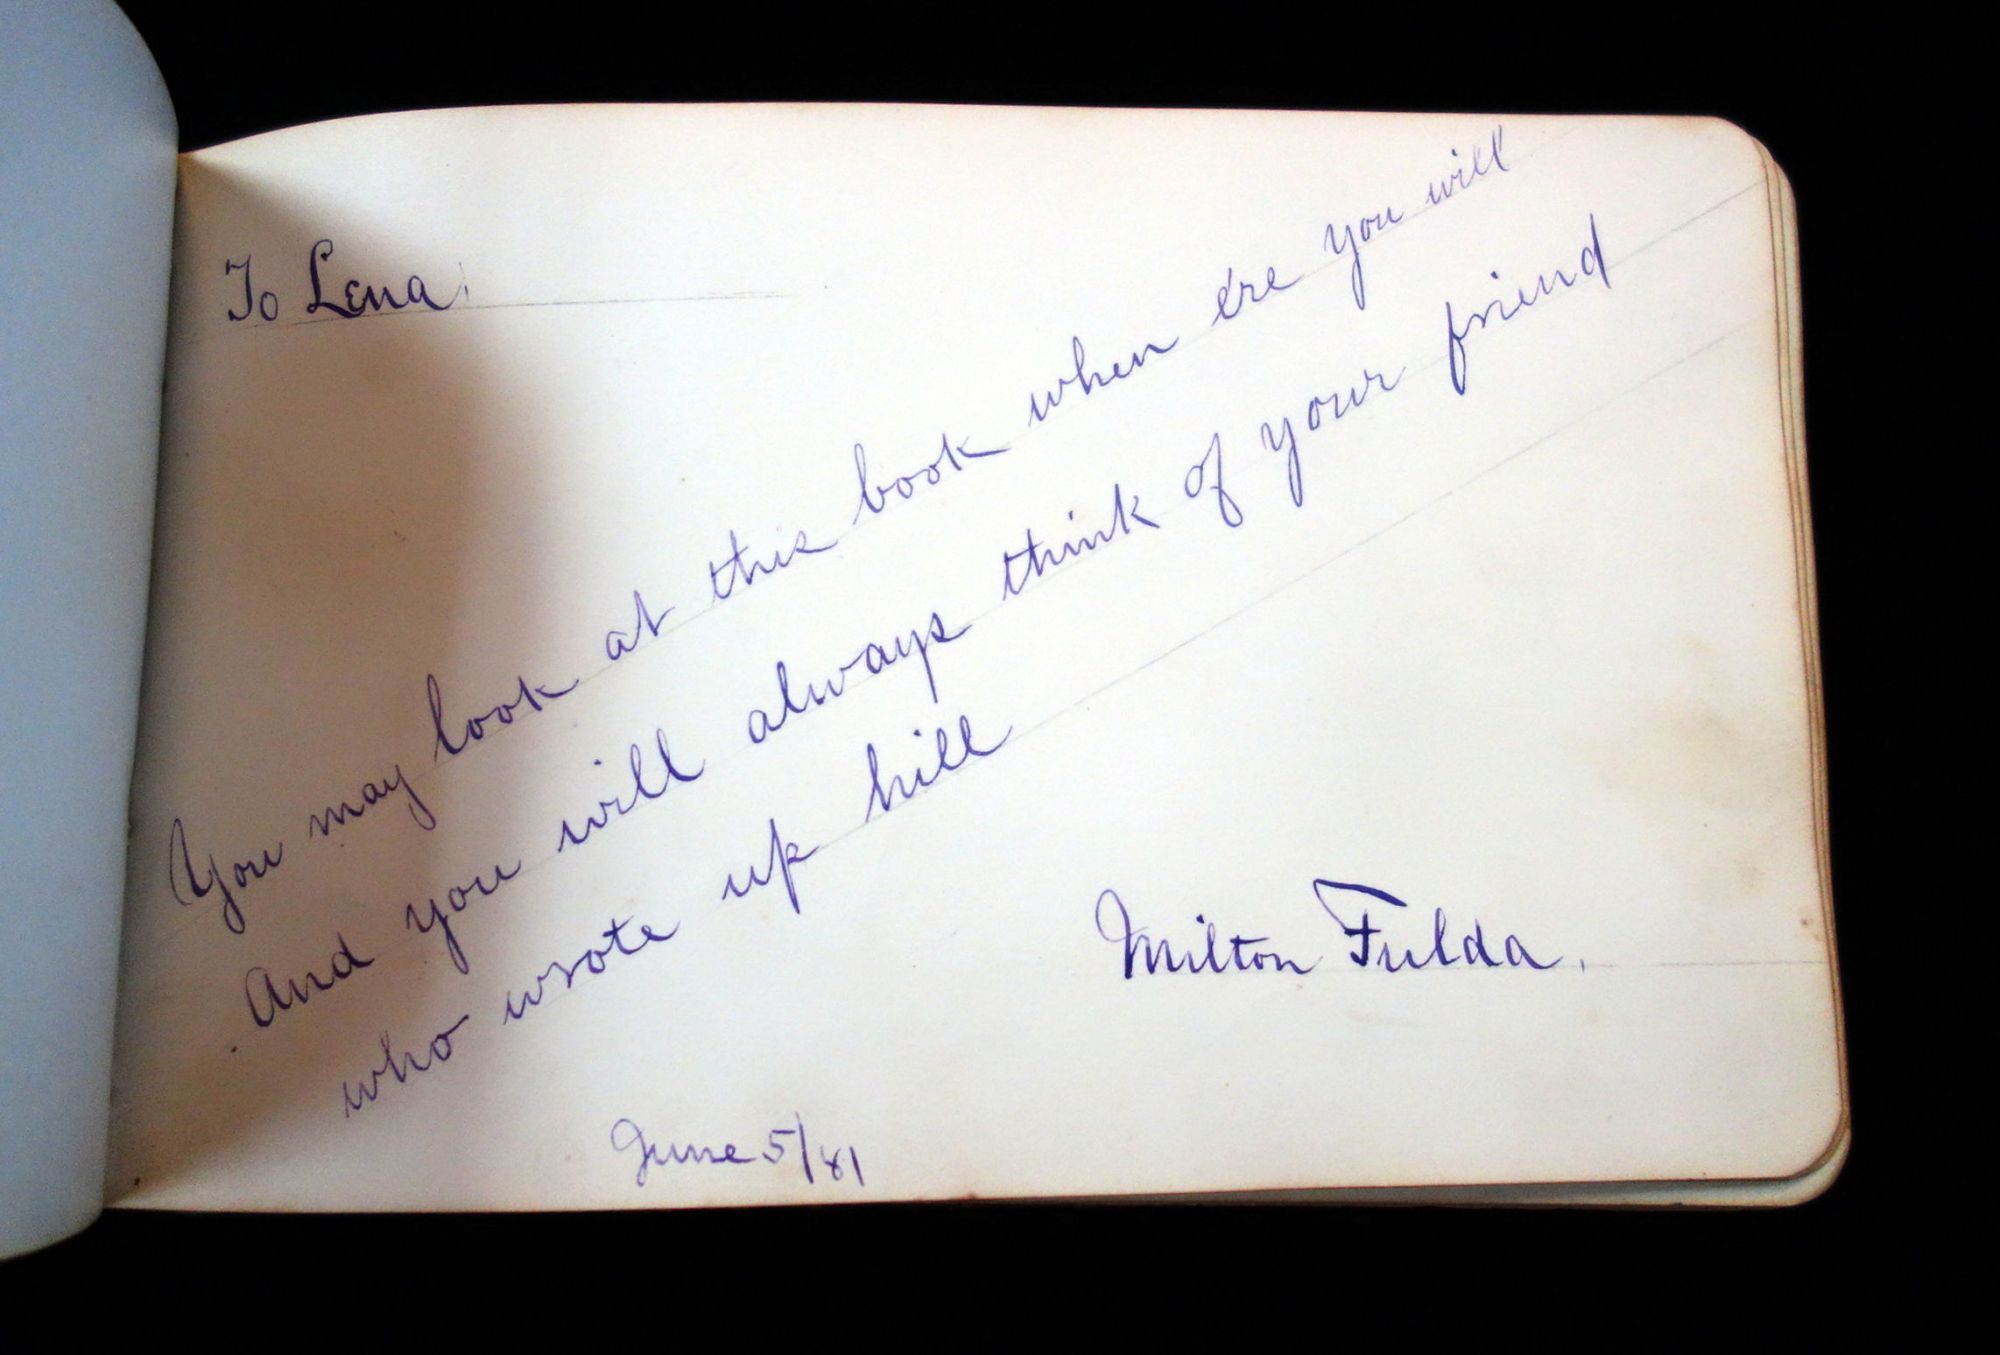 To Lena.
You may look at this book when e're you will
And you will always think of your friend
who wrote up hill
Milton Fulda.
June 5/81